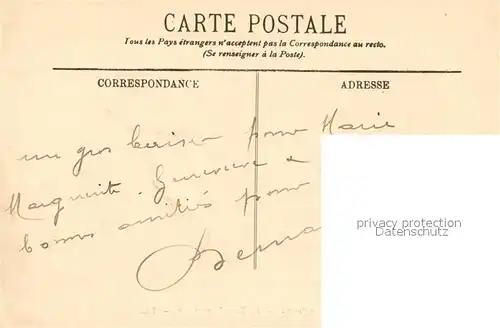 CARTE POSTALE
Tous les Pays étrangers n'acceptent pas la Correspondance au recto.
(Se renseigner à la Poste).
CORRESPONDANCE
ADRESSE
un gros baiser pour Marie
Marguerite. Geneviève
bonnes amitiés pour
privacy protection
Datenschutz